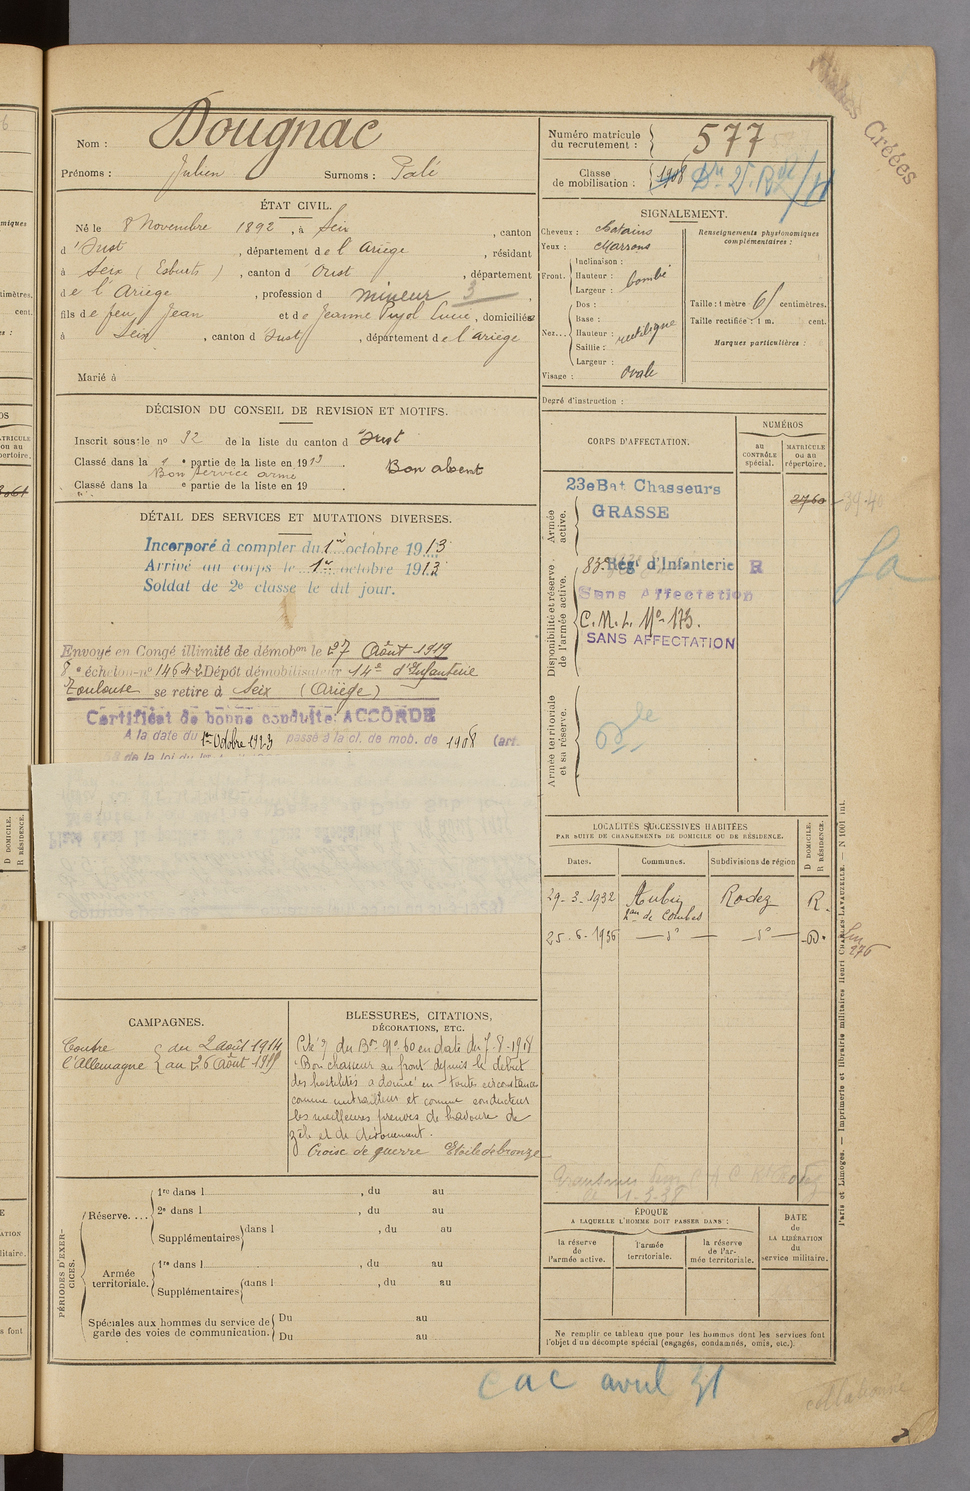 Nom : Dougnac
Prénoms : Julien Surnoms : Palé
ÉTAT CIVIL.
Né le 8 Novembre 1892, à Seix, canton
d'Oust, département de l'Ariège, résidant
à Seix (Esbints), canton d'Oust, département
de l'Ariège, profession d mineur 3
fils de feu Jean et de Jeanne Pujol Lucie, domiciliés
à Seix, canton d'Oust, département de l'Ariège
Marié à
DÉCISION DU CONSEIL DE REVISION ET MOTIFS.
Inscrit sous le no 32 de la liste du canton d'Oust
Classé dans la 1e partie de la liste en 1913. Bon absent
Bon service armé
Classé dans la e partie de la liste en 19 .
DÉTAIL DES SERVICES ET MUTATIONS DIVERSES.
Incorporé à compter du 1er octobre 1913
Arrivé au corps le 1er octobre 1913
Soldat de 2e classe le dit jour.
Envoyé en Congé illimité de démobon le 27 Août 1919
8e échelon no 14642 Dépôt démobilisateur 14e d'Infanterie
Toulouse se retire à Seix (Ariège)
Certificat de bonne conduite ACCORDÉ
A la date du 1er Octobre 1923 passé à la cl. de mob. de 1908 (art.
CAMPAGNES.
Contre l'Allemagne { du 2 août 1914
au 26 Août 1919
BLESSURES, CITATIONS,
DÉCORATIONS, ETC.
Cité à l'O. du Bon No 60 en date du 7-8-1918
"Bon chasseur au front depuis le début
des hostilités a donné en toutes circonstances
comme mitrailleur et comme conducteur
les meilleures preuves de bravoure de
zèle et de dévouement.
Croix de guerre Etoile de bronze
PÉRIODES D'EXERCICES.
Réserve....
1re dans l , du au
2e dans l , du au
Supplémentaires dans l , du au
Armée territoriale.
1re dans l , du au
Supplémentaires dans l , du au
Spéciales aux hommes du service de
garde des voies de communication.
Du au
Du au
Numéro matricule
du recrutement : 577
Classe
de mobilisation : 1908
SIGNALEMENT.
Cheveux : châtains
Yeux : Marrons
Front. Inclinaison :
Hauteur : bombé
Largeur :
Nez... Dos :
Base :
Hauteur : rectiligne
Saillie :
Largeur :
Visage : ovale
Renseignements physionomiques
complémentaires :
Taille : 1 mètre 61 centimètres.
Taille rectifiée : 1 m. cent.
Marques particulières :
Degré d'instruction :
CORPS D'AFFECTATION.
NUMÉROS
au
CONTRÔLE
spécial.
MATRICULE
ou au
répertoire.
Armée
active.
23e Bat Chasseurs
GRASSE
2760
Disponibilité et réserve
de l'armée active.
83e Régt d'Infanterie R
Sans Affectation
C.M.I. No 173.
SANS AFFECTATION
Armée territoriale
et sa réserve.
LOCALITÉS SUCCESSIVES HABITÉES
PAR SUITE DE CHANGEMENTS DE DOMICILE OU DE RÉSIDENCE.
Dates. Communes. Subdivisions de région
D DOMICILE.
R RÉSIDENCE.
29-3-1932 Aubin Rodez R.
de Combes
25-6-1936 — do — — do — D.
ÉPOQUE
A LAQUELLE L'HOMME DOIT PASSER DANS :
la réserve
de
l'armée active.
l'armée
territoriale.
la réserve
de l'ar-
mée territoriale.
DATE
de
LA LIBÉRATION
du
service militaire.
Ne remplir ce tableau que pour les hommes dont les services font
l'objet d'un décompte spécial (engagés, condamnés, omis, etc.).
Paris et Limoges. — Imprimerie et librairie militaires Henri CHARLES-LAVAUZELLE. — N 1001 int.
Créées
cac avril 31